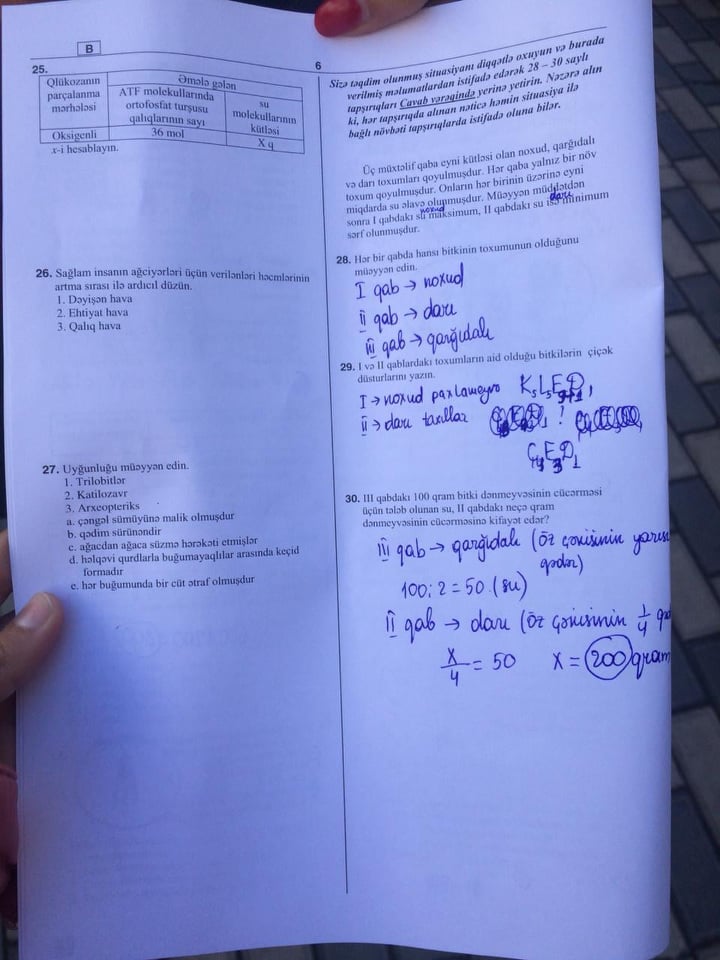 B
6
25.
Qlükozanın parçalanma mərhələsi
Əmələ gələn
ATF molekullarında ortofosfat turşusu qalıqlarının sayı
su molekullarının kütləsi
Oksigenli
36 mol
X q
x-i hesablayın.
26. Sağlam insanın ağciyərləri üçün verilənləri həcmlərinin
artma sırası ilə ardıcıl düzün.
1. Dəyişən hava
2. Ehtiyat hava
3. Qalıq hava
27. Uyğunluğu müəyyən edin.
1. Trilobitlər
2. Katilozavr
3. Arxeopteriks
a. çəngəl sümüyünə malik olmuşdur
b. qədim sürünəndir
c. ağacdan ağaca süzmə hərəkəti etmişlər
d. həlqəvi qurdlarla buğumayaqlılar arasında keçid
formadır
e. hər buğumunda bir cüt ətraf olmuşdur
Sizə təqdim olunmuş situasiyanı diqqətlə oxuyun və burada
verilmiş məlumatlardan istifadə edərək 28 – 30 saylı
tapşırıqları Cavab vərəqində yerinə yetirin. Nəzərə alın
ki, hər tapşırıqda alınan nəticə həmin situasiya ilə
bağlı növbəti tapşırıqlarda istifadə oluna bilər.
Üç müxtəlif qaba eyni kütləsi olan noxud, qarğıdalı
və darı toxumları qoyulmuşdur. Hər qaba yalnız bir növ
toxum qoyulmuşdur. Onların hər birinin üzərinə eyni
miqdarda su əlavə olunmuşdur. Müəyyən müddətdən
noxud darı
sonra I qabdakı su maksimum, II qabdakı su isə minimum
sərf olunmuşdur.
28. Hər bir qabda hansı bitkinin toxumunun olduğunu
müəyyən edin.
I qab → noxud
II qab → darı
III qab → qarğıdalı
29. I və II qablardakı toxumların aid olduğu bitkilərin çiçək
düsturlarını yazın.
I → noxud paxlameyvə K₅L₅E₉₊₁D₁
II → darı taxıllar !
Ç₄E₃D₁
30. III qabdakı 100 qram bitki dənmeyvəsinin cücərməsi
üçün tələb olunan su, II qabdakı neçə qram
dənmeyvəsinin cücərməsinə kifayət edər?
III qab → qarğıdalı (öz çəkisinin yarısı
qədər)
100 : 2 = 50 (su)
II qab → darı (öz çəkisinin 1/4
x/4 = 50 x = 200 qram